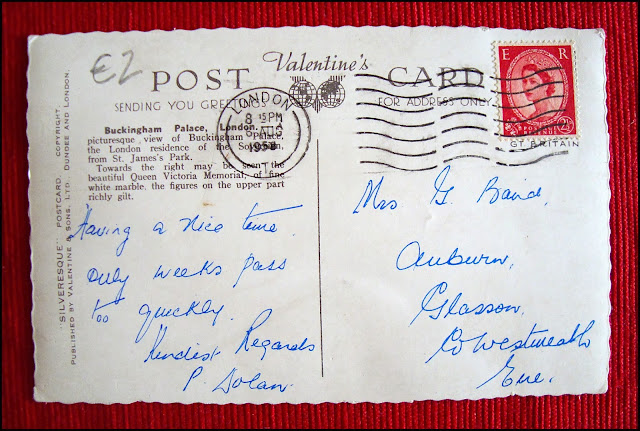 €2
Valentine's
POST CARD
SENDING YOU GREETINGS
FOR ADDRESS ONLY
LONDON
8 15 PM
AUG
E R
POSTAGE
2½
GT BRITAIN
Buckingham Palace, London.
picturesque view of Buckingham Palace,
the London residence of the Sovereign,
from St. James's Park.
Towards the right may be seen the
beautiful Queen Victoria Memorial, of fine
white marble, the figures on the upper part
richly gilt.
"SILVERESQUE" POSTCARD. COPYRIGHT.
PUBLISHED BY VALENTINE & SONS, LTD. DUNDEE AND LONDON.
Having a nice time
Only weeks pass
too quickly.
Kindest Regards
P. Dolan.
Mrs G. Baird,
Auburn,
Glasson,
Co Westmeath
Eire.